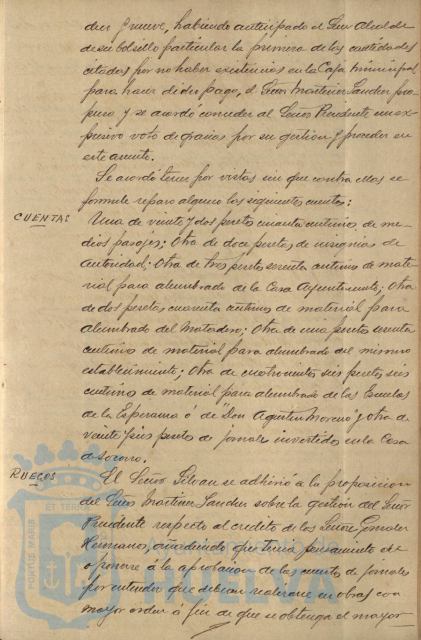 diez y nueve, habiendo anticipado el Señor Alcalde
de su bolsillo particular la primera de las cantidades
citadas por no haber existencias en la Caja Municipal
para hacer dicho pago, el Señor Martinez Sanchez pro
puso y se acordó conceder al Señor Presidente un ex
presivo voto de gracias por su gestion y proceder en
este asunto.
Se acordó tener por vistas sin que contra ellas se
formule reparo alguno las siguientes cuentas:
CUENTAS
Una de veinte y dos pesetas cincuenta centimos de me
dios pasajes; Otra de doce pesetas de insignias de
Autoridad; Otra de tres pesetas sesenta centimos de mate
rial para alumbrado de la Casa Ayuntamiento; Otra
de dos pesetas cuarenta centimos de material para
alumbrado del Matadero; Otra de una peseta sesenta
centimos de material para alumbrado del mismo
establecimiento; Otra de cuatrocientas seis pesetas seis
centimos de material para alumbrado de las Escuelas
de la Esperanza ó de "Don Agustin Moreno" y otra de
veinte y seis pesetas de jornales invertidos en la Casa
de Socorro.
RUEGOS
El Señor Silvan se adhirió á la proposicion
del Señor Martinez Sanchez sobre la gestión del Señor
Presidente respecto al credito de los Señores Gonzalez
Hermano, añadiendo que tenia pensamiento de
oponerse á la aprobacion de las cuentas de jornales
por entender que debian realizarse las obras con
mayor orden á fin de que se obtenga el mayor
PORTUS MARIS ET TERRAE
HUELVA